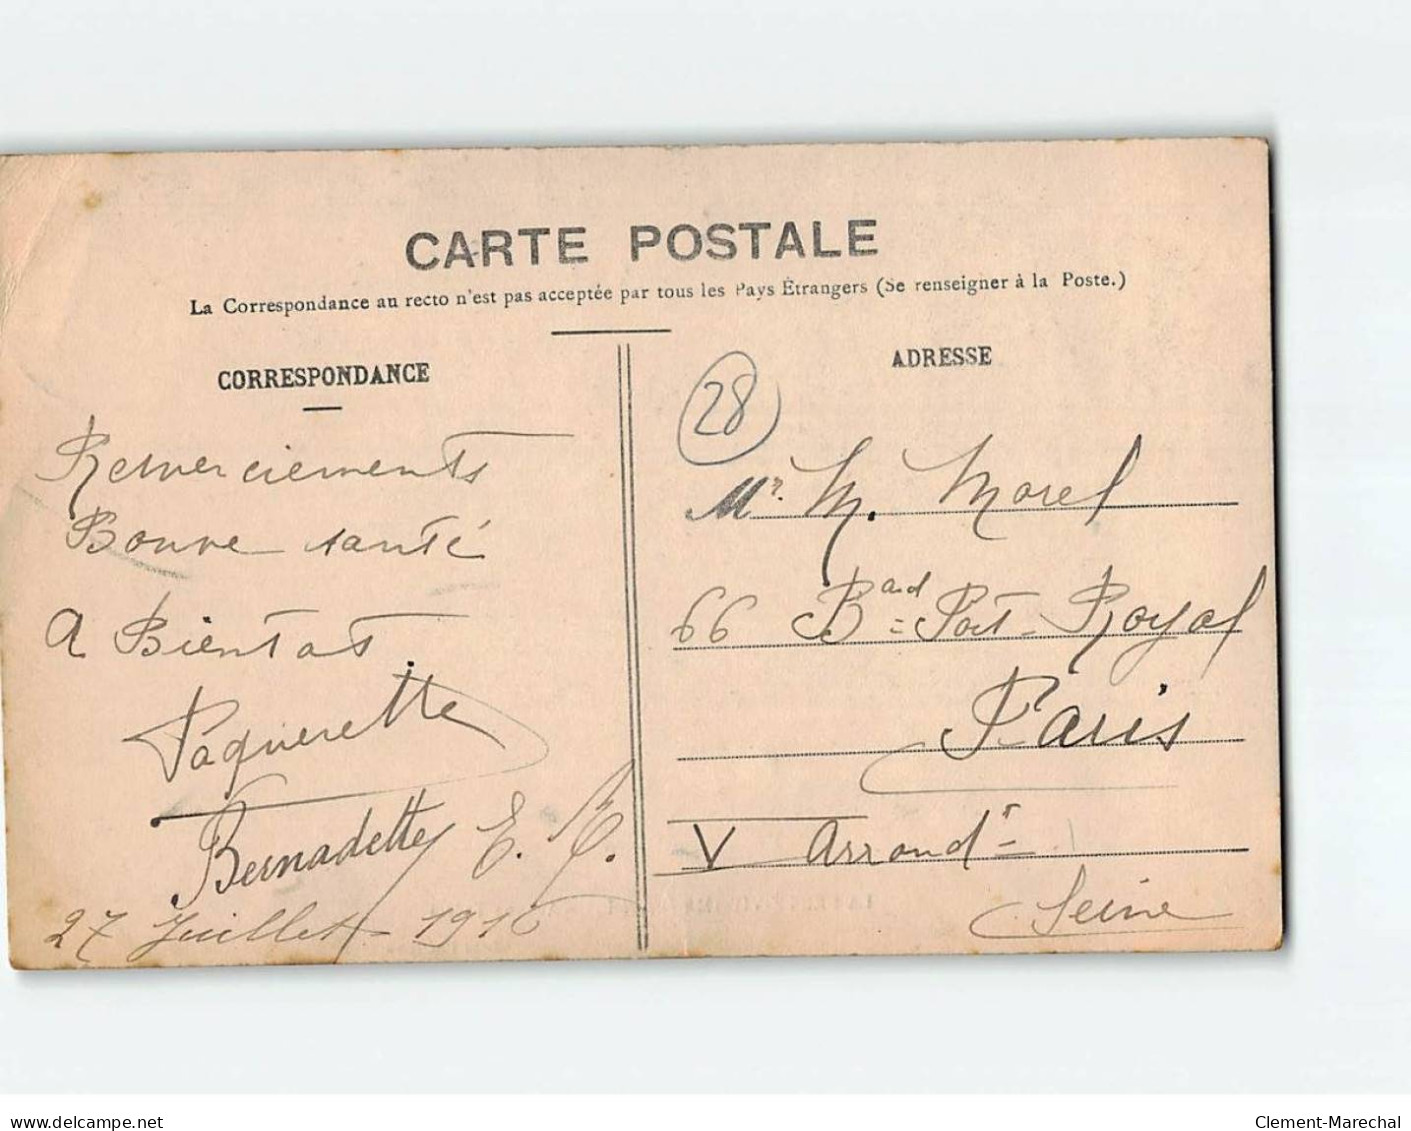 CARTE POSTALE
La Correspondance au recto n'est pas acceptée par tous les Pays Étrangers (Se renseigner à la Poste.)
CORRESPONDANCE
Remerciements
Bonne santé
A Bientot
Paquerette
Bernadette E. M.
27 Juillet 1916
ADRESSE
28
Mr. M. Morel
66 Bard = Port-Royal
Paris
V Arrondt
Seine
delcampe.net
Clement-Marechal